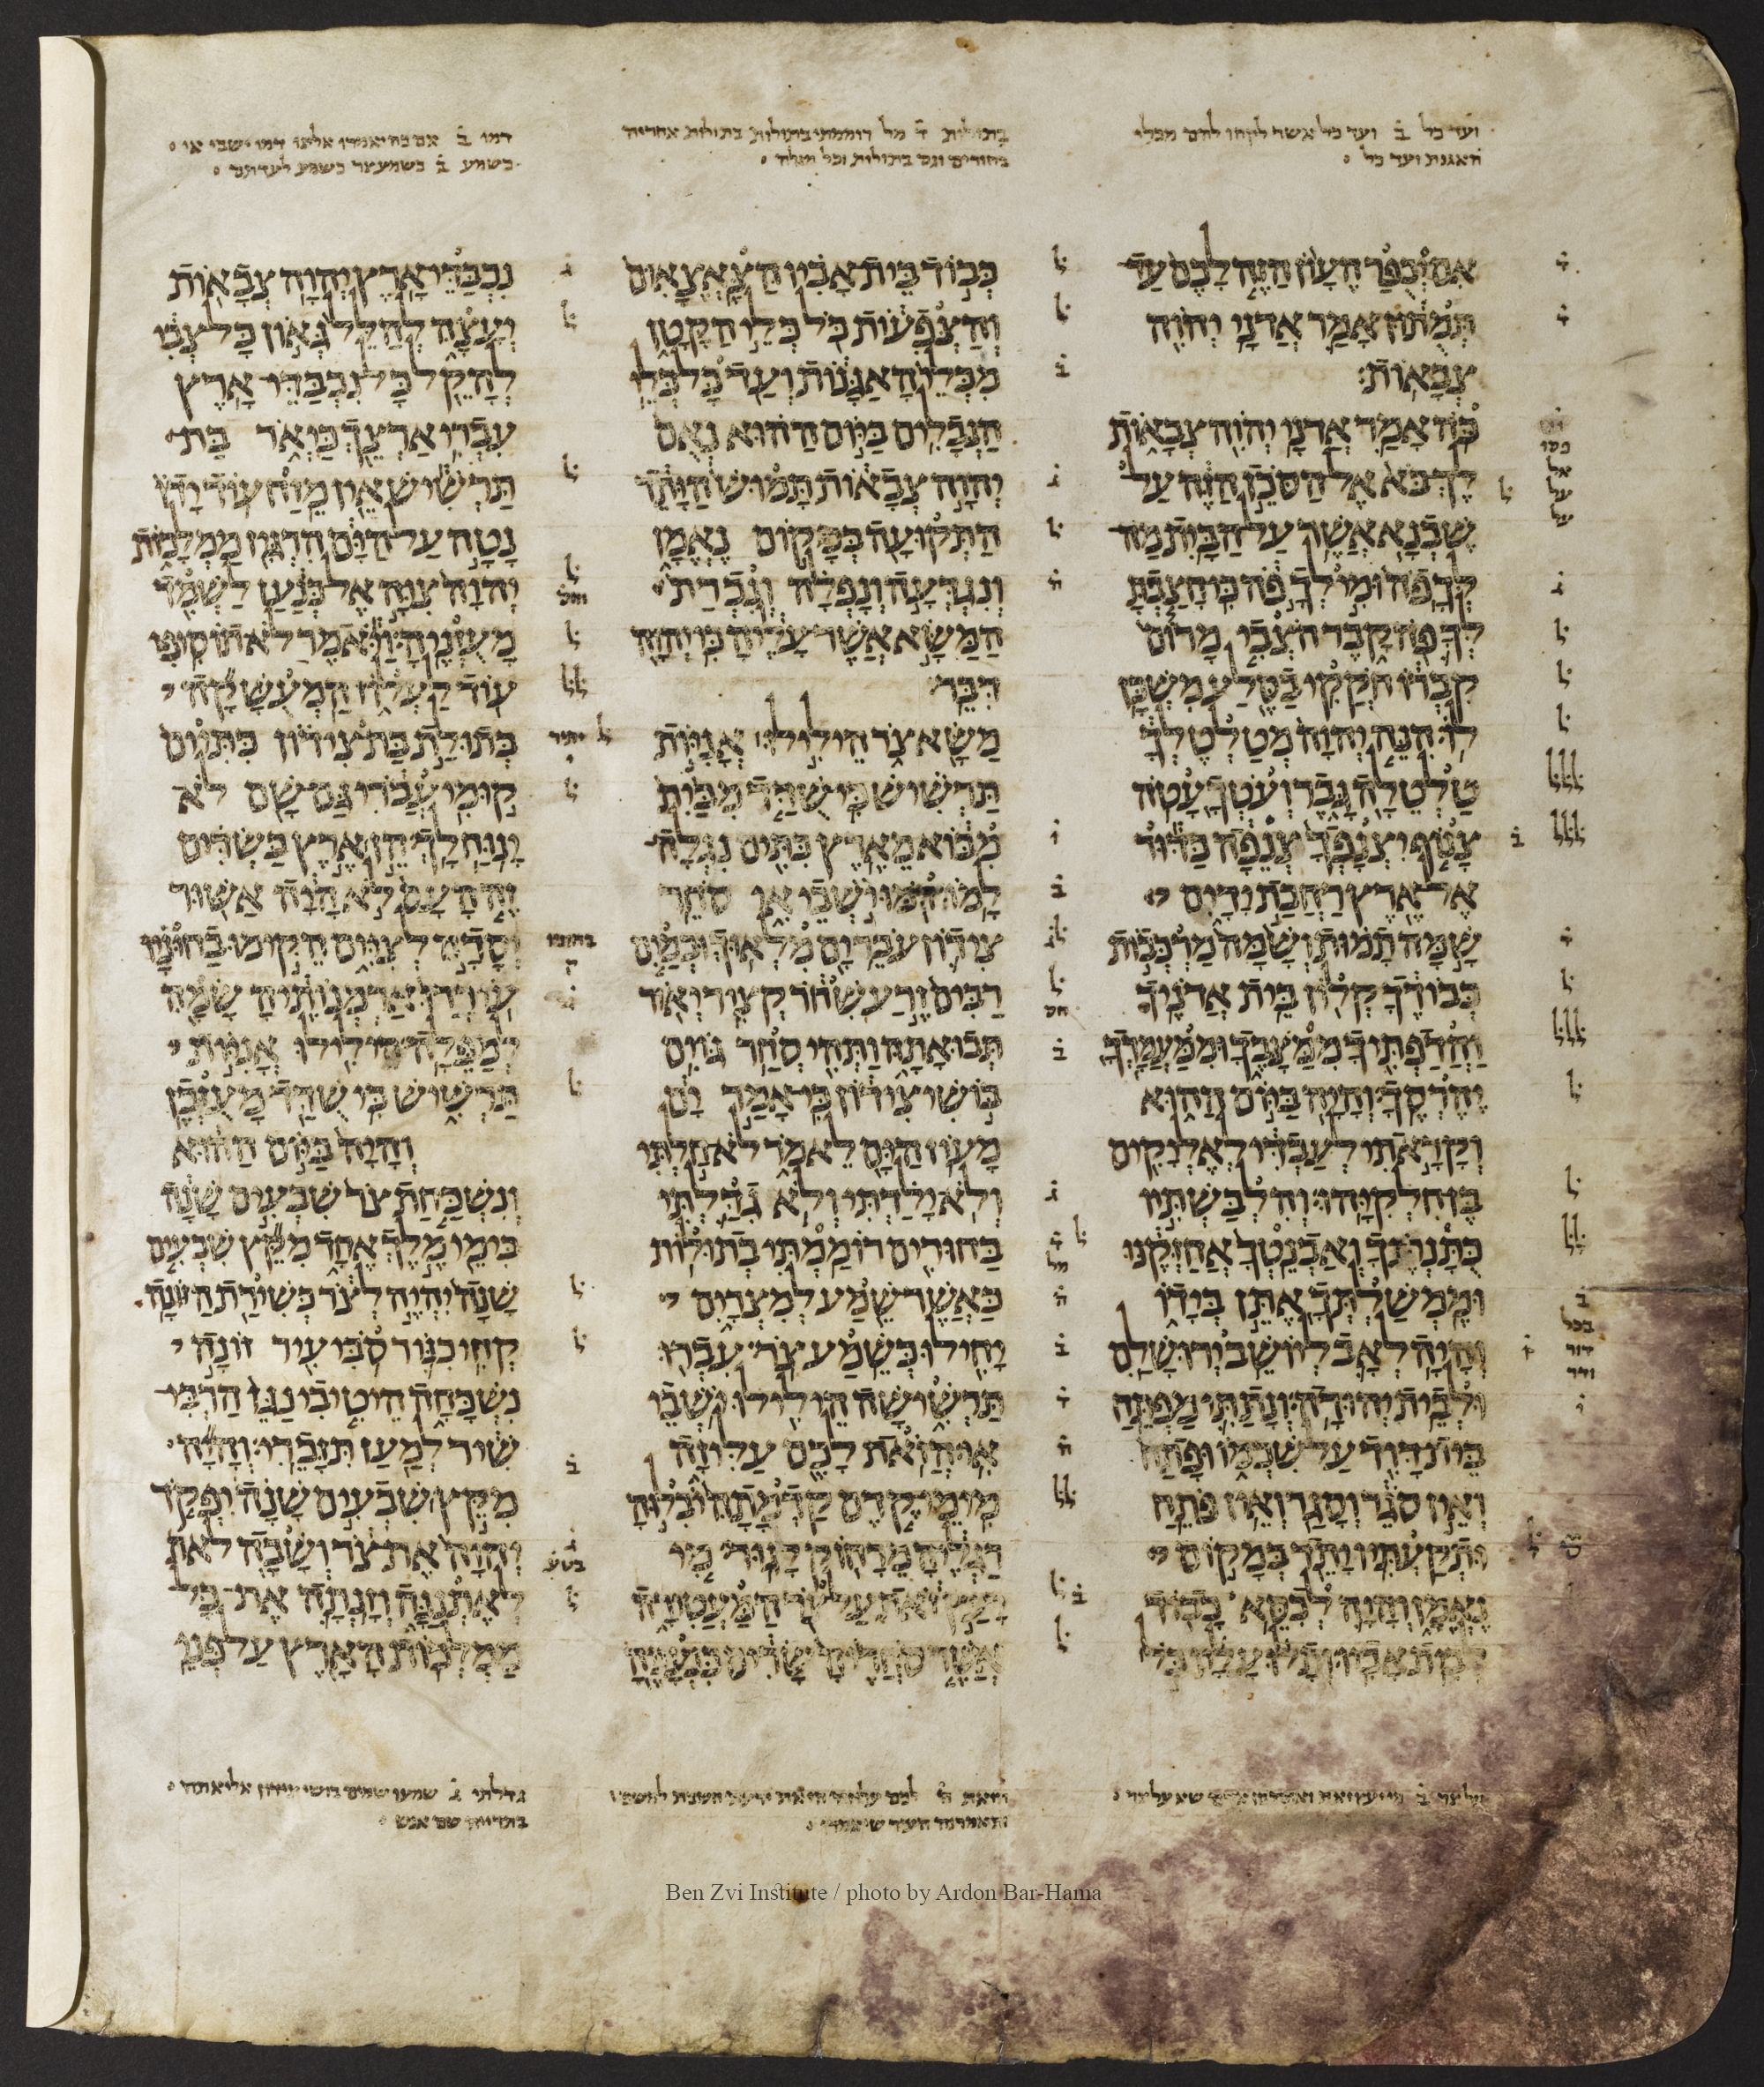 ועד כל ב ועד כל אשר לקחו להם מכלי
האגנת ועד כל
בתולות ד מל רוממתי בתולות בתולות אחריה
בחורים וגם בתולות וכל מגלה
דמו ב אם כה יאמרו אלינו דמו ישבי אי
כשמע ב כשמע צר כשמע לעדתם
אם יכפר העון הזה לכם עד
תמתון אמר אדני יהוה
צבאות
כה אמר אדני יהוה צבאות
לך בא אל הסכן הזה על
שבנא אשר על הבית מה
לך פה ומי לך פה כי חצבת
לך פה קבר חצבי מרום
קברו חקקי בסלע משכן
לו הנה יהוה מטלטלך
טלטלה גבר ועטך עטה
צנוף יצנפך צנפה כדור
אל ארץ רחבת ידים
שמה תמות ושמה מרכבות
כבודך קלון בית אדניך
והדפתיך ממצבך וממעמדך
יהרסך והיה ביום ההוא
וקראתי לעבדי לאליקים
בן חלקיהו והלבשתיו
כתנתך ואבנטך אחזקנו
וממשלתך אתן בידו
והיה לאב ליושב ירושלם
ולבית יהודה ונתתי מפתח
בית דוד על שכמו ופתח
ואין סגר וסגר ואין פתח
ותקעתיו יתד במקום
נאמן והיה לכסא כבוד
לבית אביו ותלו עליו כל
כבוד בית אביו הצאצאים
והצפעות כל כלי הקטן
מכלי האגנות ועד כל כלי
הנבלים ביום ההוא נאם
יהוה צבאות תמוש היתד
התקועה במקום נאמן
ונגדעה ונפלה ונכרת
המשא אשר עליה כי יהוה
דבר
משא צר הילילו אניות
תרשיש כי שדד מבית
מבוא מארץ כתים נגלה
למו דמו ישבי אי סחר
צידון עבר ים מלאוך ובמים
רבים זרע שחר קציר יאור
תבואתה ותהי סחר גוים
בושי צידון כי אמר ים
מעוז הים לאמר לא חלתי
ולא ילדתי ולא גדלתי
בחורים רוממתי בתולות
כאשר שמע למצרים
יחילו כשמע צר עברו
תרשישה הילילו ישבי
אי הזאת לכם עליזה
מימי קדם קדמתה יבלוה
רגליה מרחוק לגור מי
יעץ זאת על צר המעטירה
אשר סחריה שרים כנעניה
נכבדי ארץ יהוה צבאות
יעצה לחלל גאון כל צבי
להקל כל נכבדי ארץ
עברי ארצך כיאר בת
תרשיש אין מזח עוד ידו
נטה על הים הרגיז ממלכות
יהוה צוה אל כנען לשמד
מעזניה ויאמר לא תוסיפי
עוד לעלוז המעשקה
בתולת בת צידון כתיים
קומי עברי גם שם לא
ינוח לך הן ארץ כשדים
זה העם לא היה אשור
יסדה לציים הקימו בחיניו
עררו ארמנותיה שמה
למפלה הילילו אניות
תרשיש כי שדד מעזכן
והיה ביום ההוא
ונשכחת צר שבעים שנה
כימי מלך אחד מקץ שבעים
שנה יהיה לצר כשירת הזונה
קחי כנור סבי עיר זונה
נשכחה היטיבי נגן הרבי
שיר למען תזכרי והיה
מקץ שבעים שנה יפקד
יהוה את צר ושבה לאתננה
וזנתה את כל
ממלכות הארץ על פני
גדלתי ג שמעו שמים בושי צידון
Ben Zvi Institute / photo by Ardon Bar-Hama